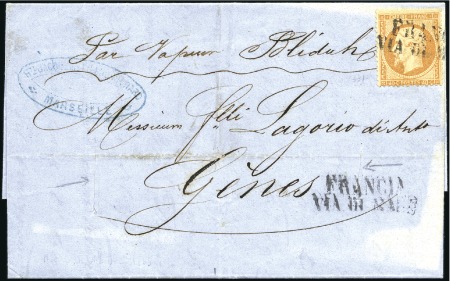 Par Vapeur Blidah
FRAN
VIA DI M
MARSEILLE
Messieurs flli Lagorio di Anto
Gênes
FRANCIA
VIA DI MARE